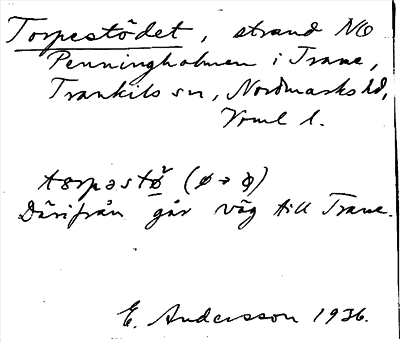 Torpestödet, strand NO
Penningholmen i Trane,
Trankils sn, Nordmarks hd,
Vrml l.
Därifrån går väg till Trane.
E. Andersson 1936.